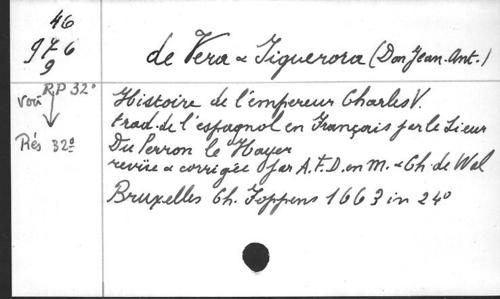 46
976
9
de Vera & Figuerora (Don Jean-Ant.)
voir RP 32°
Rés 32°
Histoire de l'empereur Charles V.
trad. de l'espagnol en Français par le Sieur
Du Perron le Hayer
revüe & corrigée par A.F.D. en M. & Ch. de Wal
Bruxelles Ch. Foppens 1663 in 24°